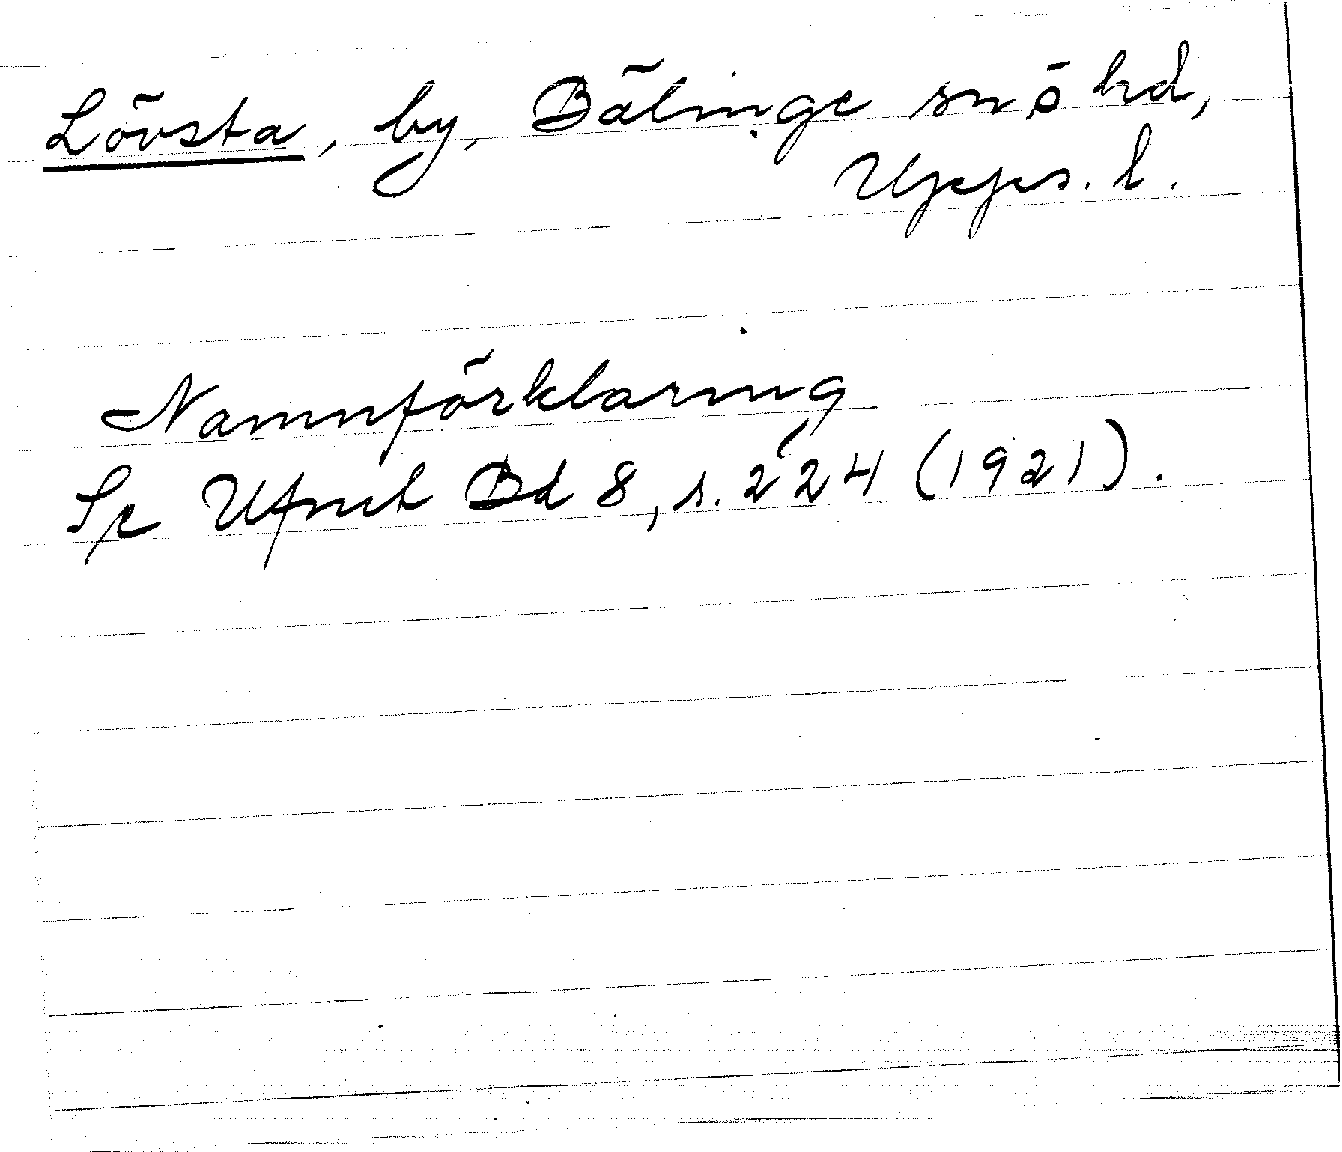 Lövsta, by, Bälinge sn ō hd,
Upps. l.
Namnförklaring
Se Ufmt Bd 8, s. 224 (1921).